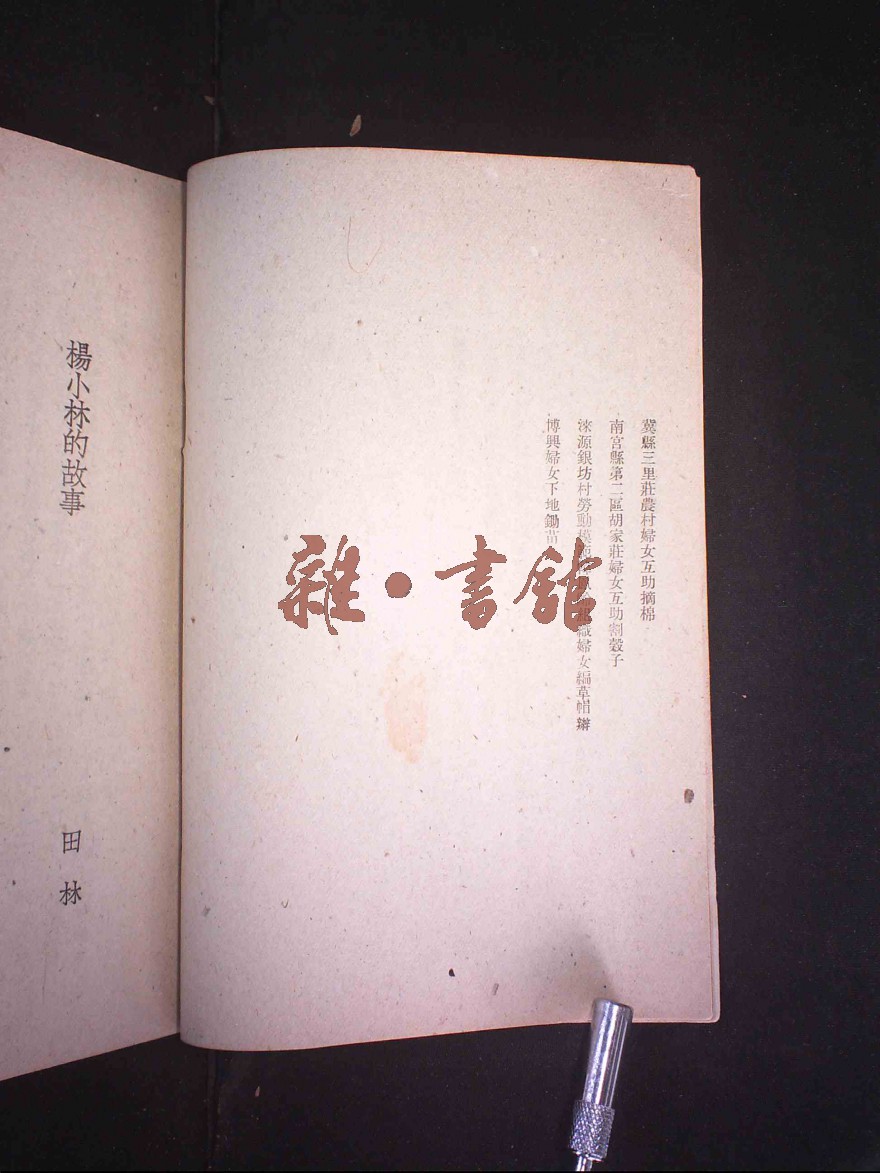 冀縣三里莊農村婦女互助摘棉
南宮縣第二區胡家莊婦女互助割穀子
淶源銀坊村勞動模範組織婦女編草帽辮
博興婦女下地鋤苗
楊小林的故事
田林
雜·書館